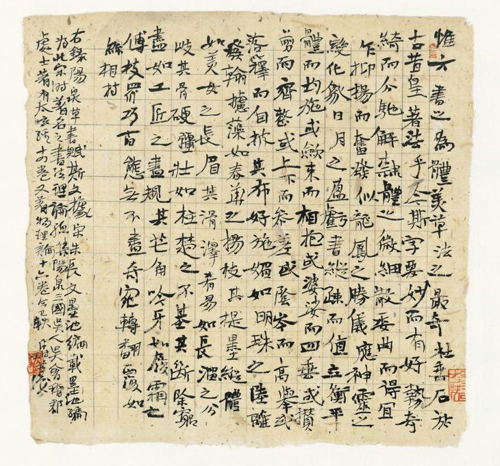 惟六書之為體美草法之最奇杜垂名於
古昔皇著法乎今斯字要妙而有好勢奇
綺而分馳解隸體之微細散委曲而得宜
乍抑揚而奮發似龍鳳之勝儀應神靈之
變化象日月之盈虧書縱竦而值立衡平
體而均施或歛束而相抱或婆娑而四垂或攢
剪而齊整或上下而參差或陰岑而高舉或
落釋而自披其布好施媚如明珠之陸離
發翰攄藻如春華之揚枝其提墨縱體
如美女之長眉其滑澤肴易如長溜之分
岐其骨硬彊壯如柱楚之不基其斷除窮
盡如工匠之盡規其芒角吟牙如嚴霜之
傅枝眾巧百態無不盡奇宛轉翻覆如
絲相持
右錄楊泉草書賦斯文據宋朱長文墨池編載墨池編
為北宋時著名之書法理論楊泉三國吳人吳會稽郡
處士著有太玄經十四卷又著物理論十六卷今已軼